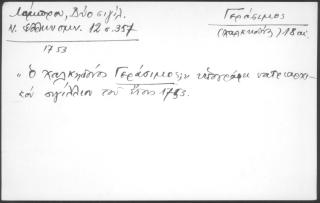 Λάμπρου, Δύο σιγίλ.
Ν. Ἑλληνομν. 12 σ. 357
1753
Γεράσιμος
(Χαλκηδών) 18 αι.
"Ὁ Χαλκηδόνος Γεράσιμος ὑπογράφει πατριαρχι-
κόν σιγίλλιον τοῦ ἔτους 1753.